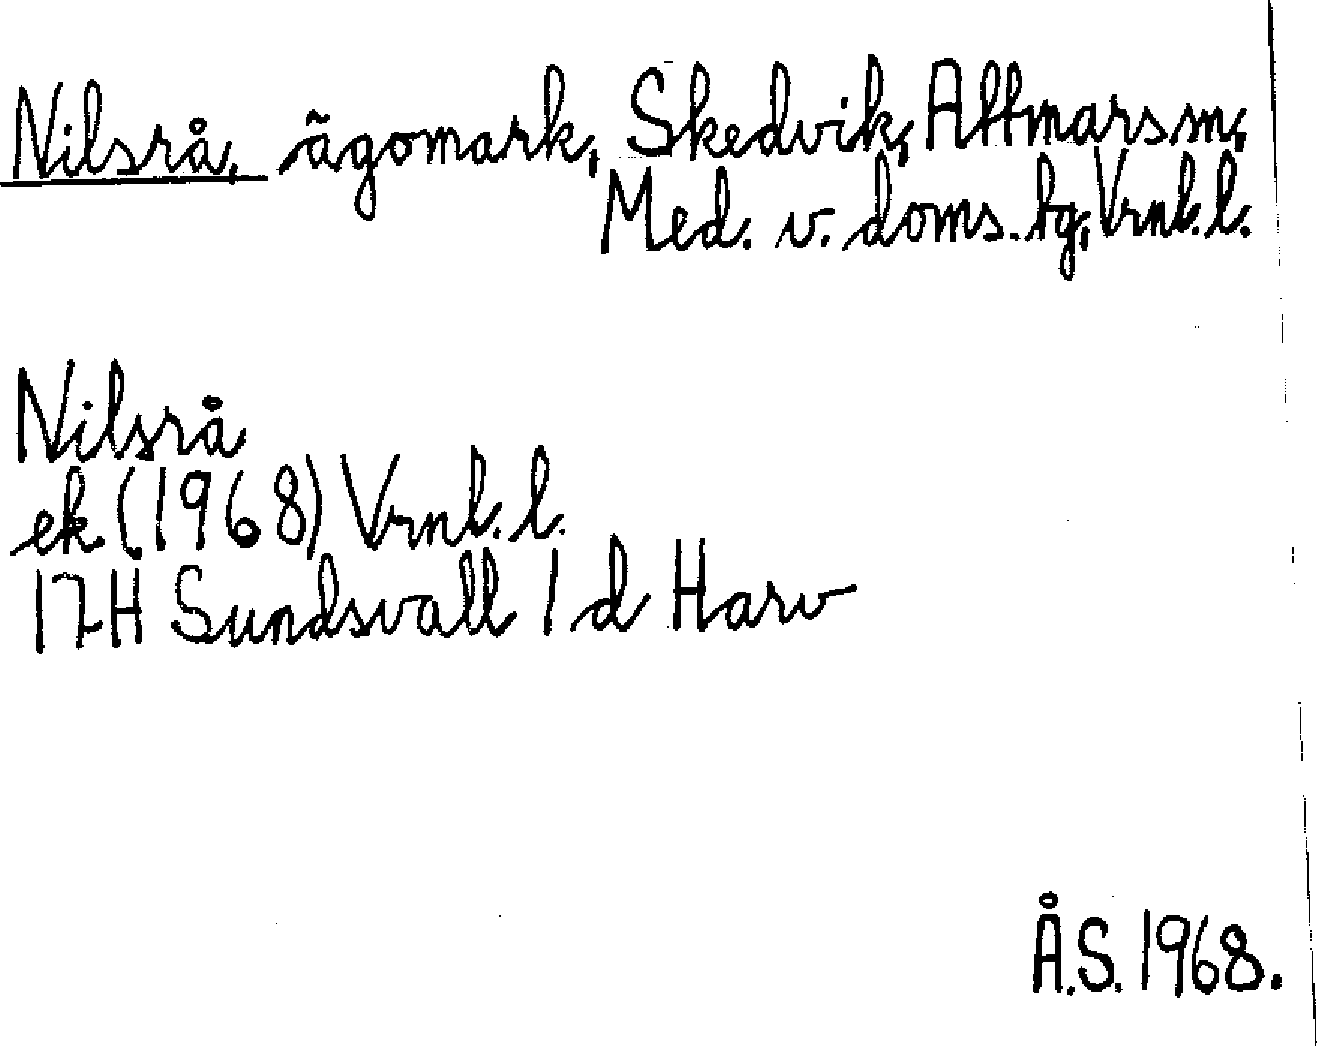 Nilsrå, ägomark, Skedvik, Attmars sn,
Med. v. doms. tg, Vrnl. l.
Nilsrå
ek (1968) Vrnl. l.
17H Sundsvall 1 d Harv
Å.S. 1968.